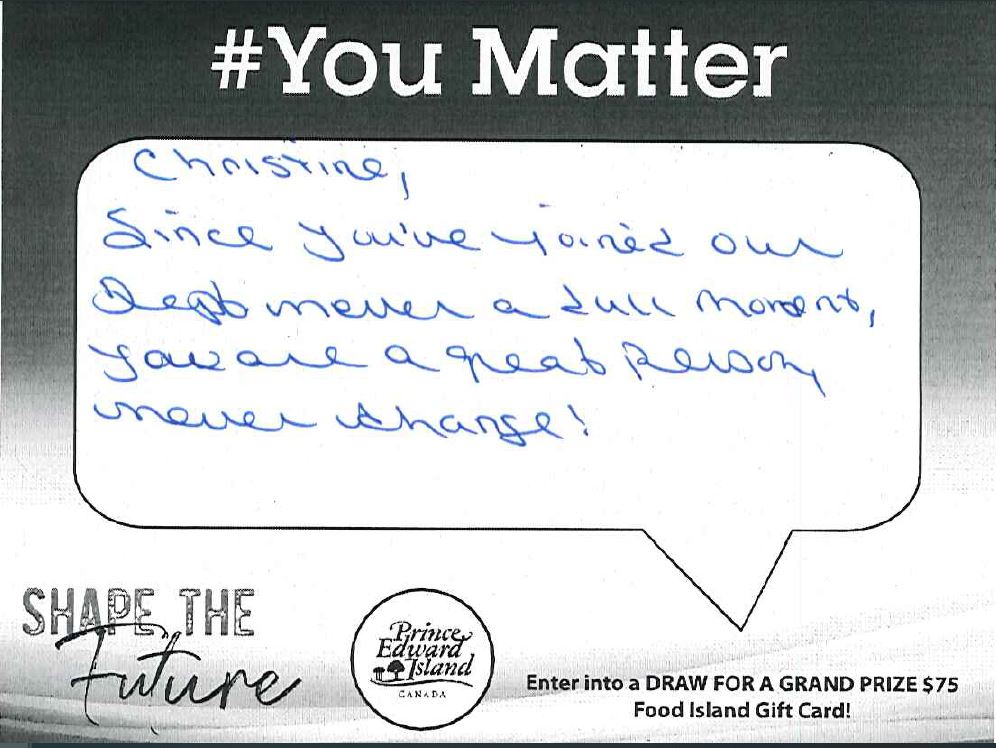 #You Matter
Christine,
Since you've joined our
Dept never a dull moment,
you are a great Person,
never change!
SHAPE THE
Future
Prince
Edward
Island
CANADA
Enter into a DRAW FOR A GRAND PRIZE $75
Food Island Gift Card!